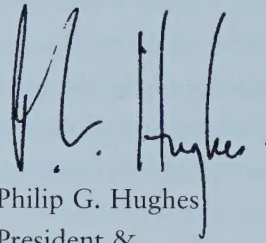 P. G. Hughes
Philip G. Hughes
President &